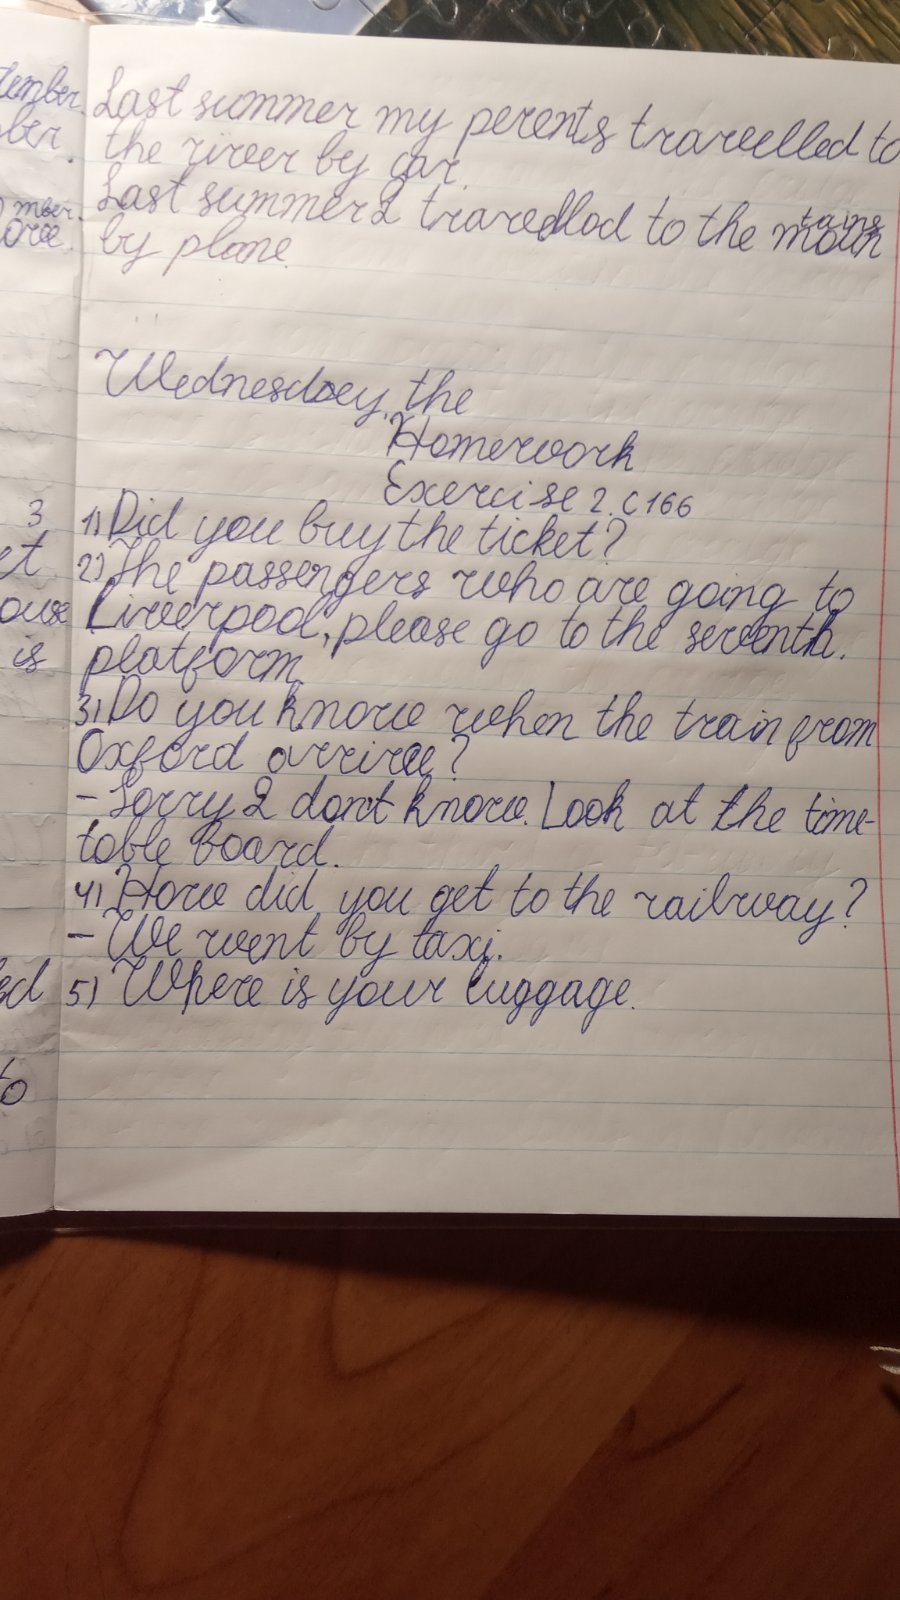 tember.
ber.
mber.
Last summer my perents travelled to
the river by car.
Last summer I travelled to the mountains
by plane.
Wednesday, the
Homework
Exercise 2. c 166
3
et
ouse
is
1) Did you buy the ticket?
2) The passengers who are going to
Liverpool, please go to the seventh.
platform.
3) Do you know when the train from
Oxford arrive?
- Sorry I don't know. Look at the time-
table board.
4) How did you get to the railway?
- We went by taxi.
5) Where is your luggage.
ed
to